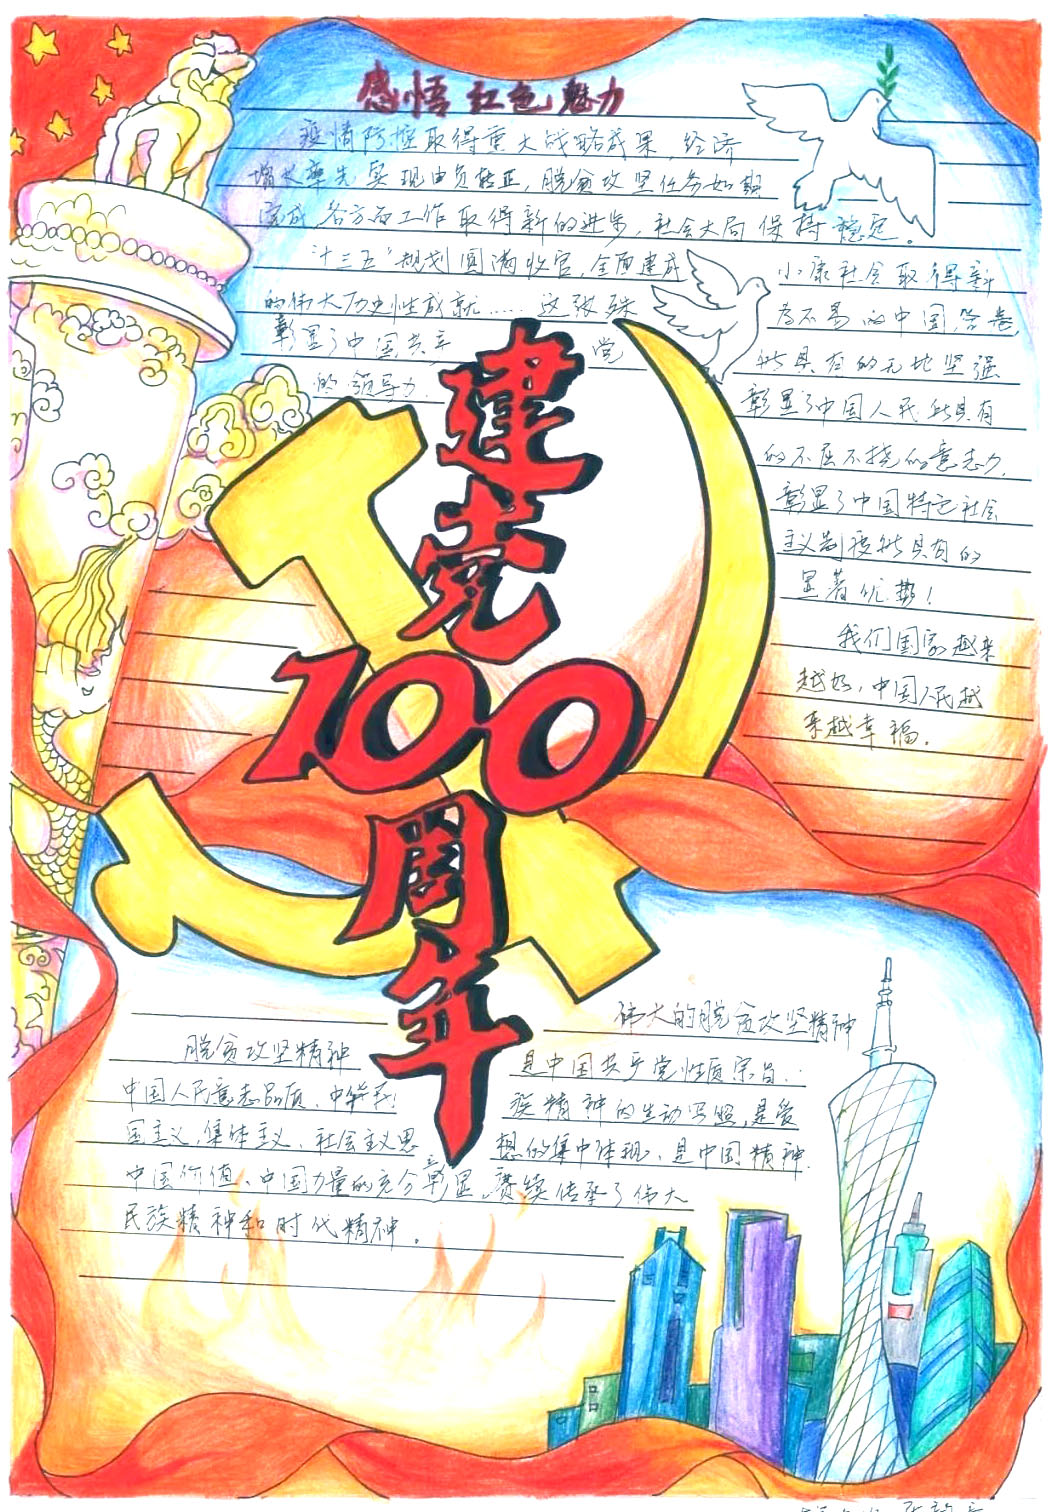 感悟红色魅力
疫情防控取得重大战略成果，经济
增长率先实现由负转正，脱贫攻坚任务如期
完成，各方面工作取得新的进步，社会大局保持稳定。
十三五"规划圆满收官，全面建成小康社会取得新
的伟大历史性成就……这张殊为不易的中国答卷，
彰显了中国共产党所具有的无比坚强
的领导力，彰显了中国人民所具有
的不屈不挠的意志力，
彰显了中国特色社会
主义制度所具有的
显著优势！
我们国家越来
越好，中国人民越
来越幸福。
建党
100
周年
伟大的脱贫攻坚精神
脱贫攻坚精神是中国共产党性质宗旨、
中国人民意志品质、中华民族精神的生动写照，是爱
国主义，集体主义、社会主义思想的集中体现，是中国精神、
中国价值、中国力量的充分彰显，赓续传承了伟大
民族精神和时代精神。